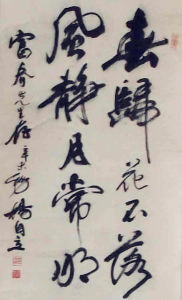 春歸花不落
風靜月常明
富春先生作辛未
楊自立